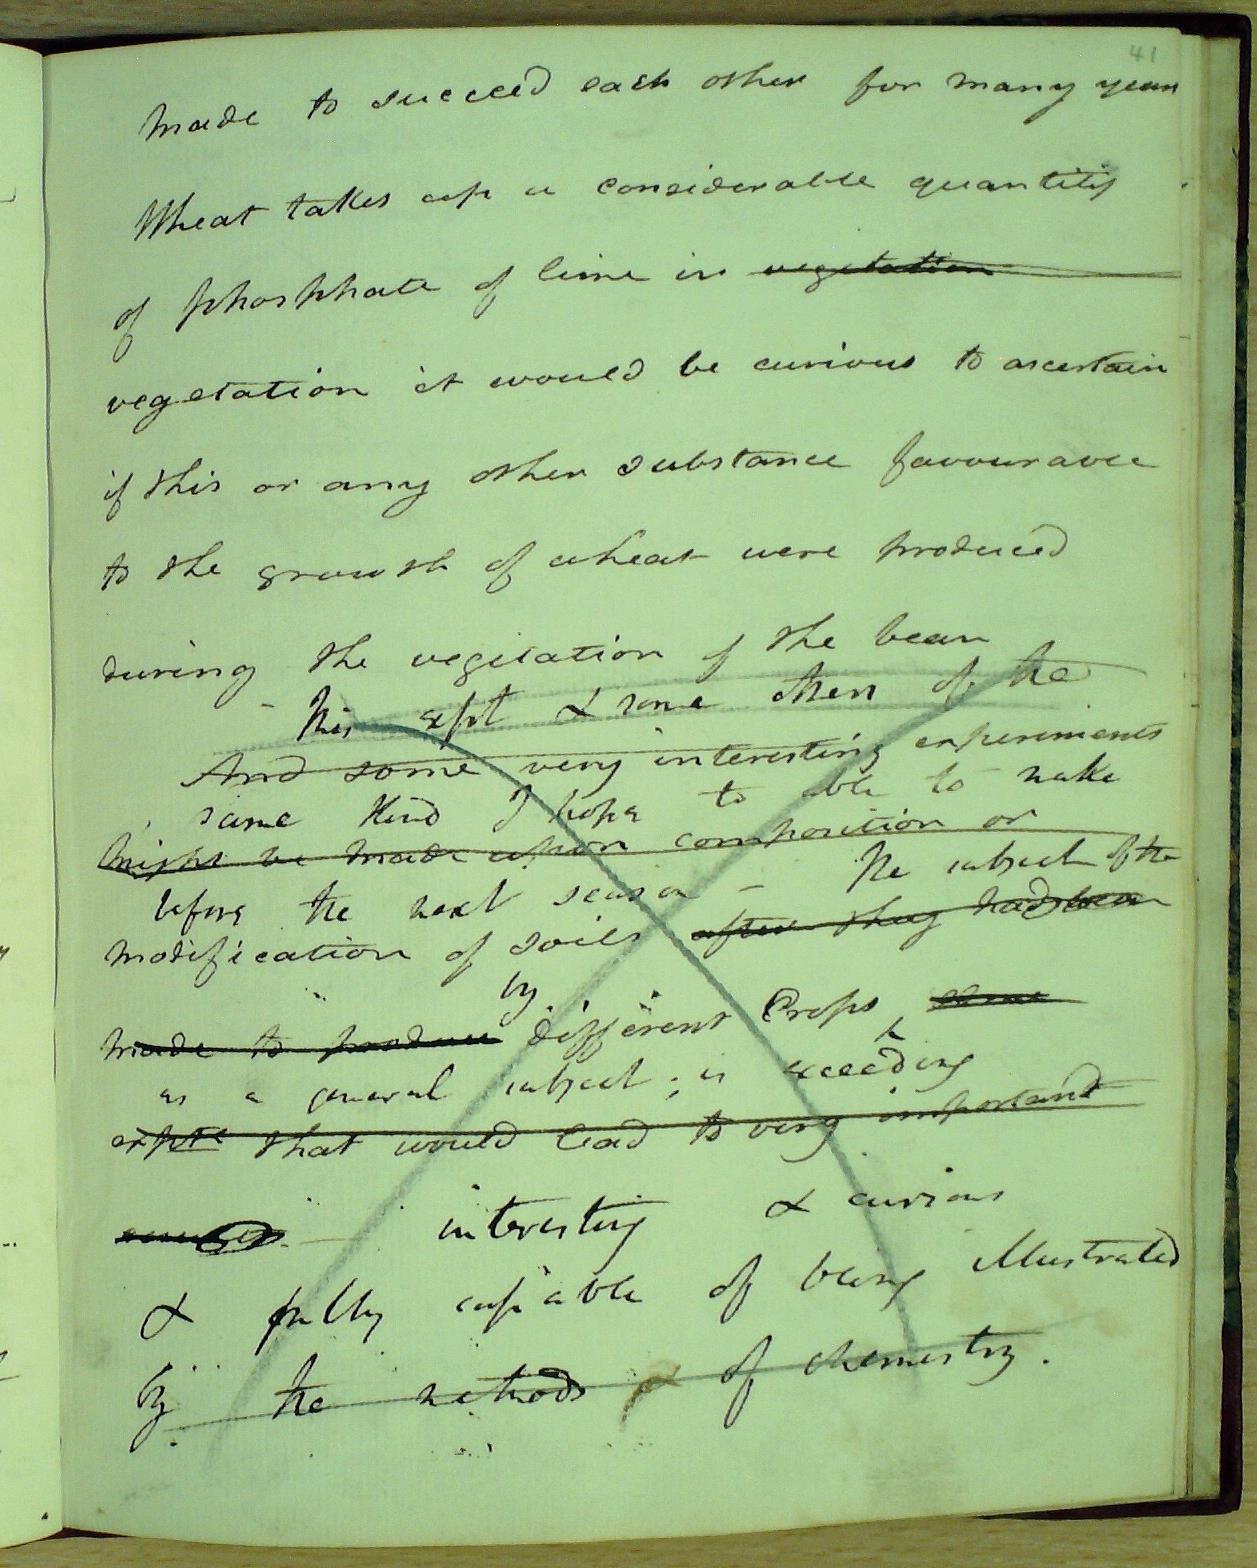 41
made to succeed each other for many years
Wheat takes up a considerable quantity
of phosphate of lime in vegetation
vegetation it would be curious to ascertain
if this or any other substance favourable
to the growth of wheat were produced
during the vegetation of the bean
This expt & some others of the
And some very interesting experiments
same kind I hope to able to make
might be made upon composition or
before the next season – The subject of the
modification of soils after they had been
by
made to produce different Crops
as a general subject, is exceeding
expts that would lead to very important
interesting & curious
& fully capable of being illustrated
by the methods of chemistry.